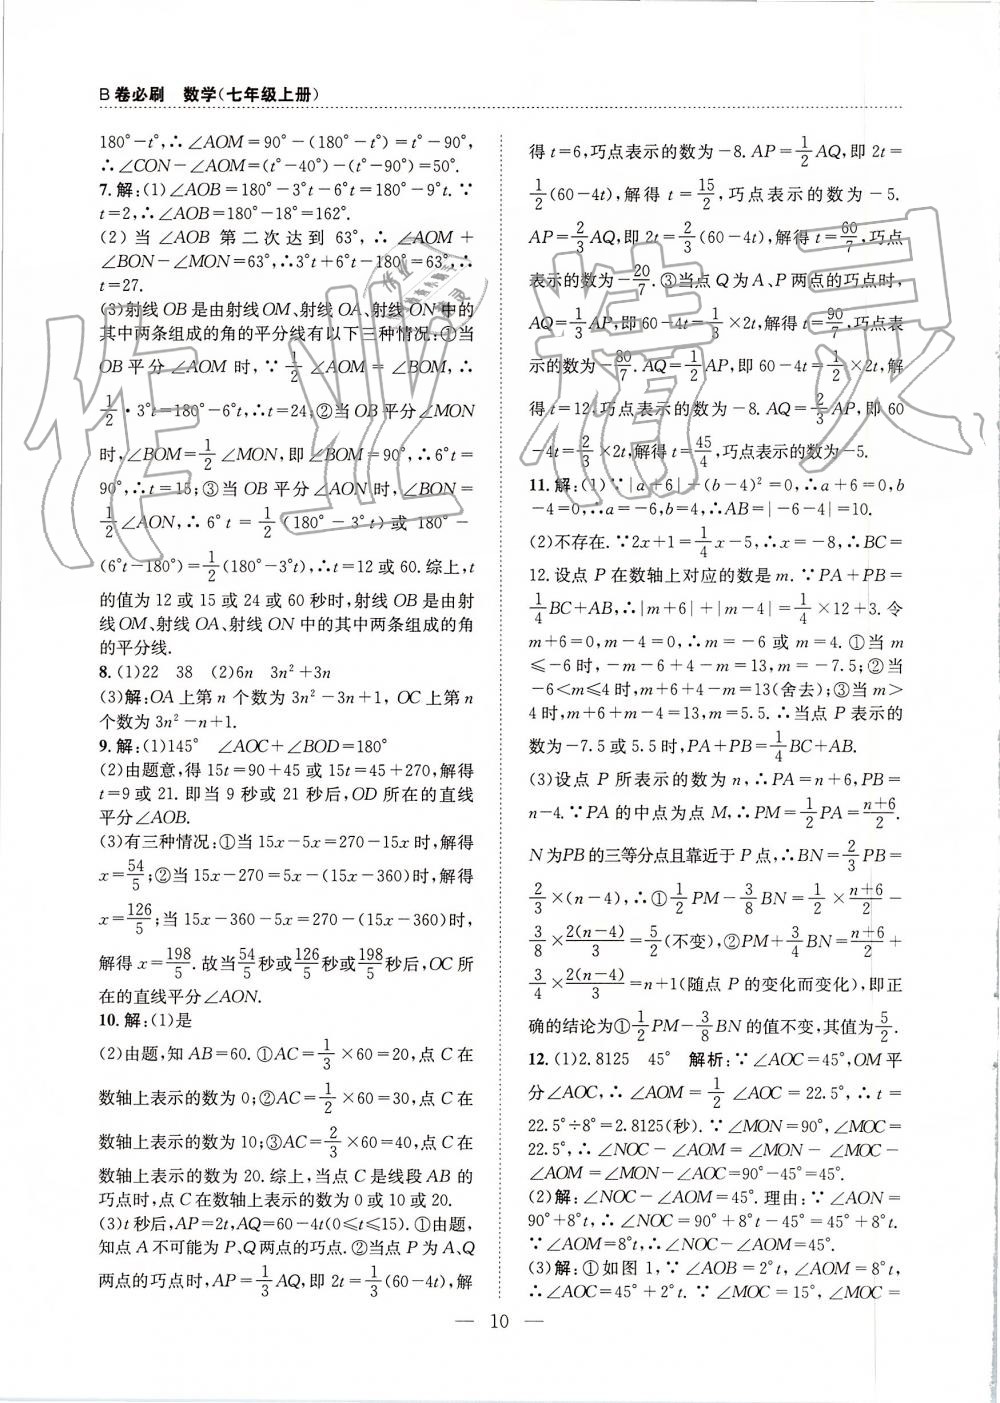 B卷必刷 数学(七年级上册)
180°-t°,∴∠AOM=90°-(180°-t°)=t°-90°,
∴∠CON-∠AOM=(t°-40°)-(t°-90°)=50°.
7.解:(1)∠AOB=180°-3°t-6°t=180°-9°t.∵
t=2,∴∠AOB=180°-18°=162°.
(2)当∠AOB第二次达到63°,∴∠AOM+
∠BON-∠MON=63°,∴3°t+6°t-180°=63°,∴
t=27.
(3)射线OB是由射线OM、射线OA、射线ON中的
其中两条组成的角的平分线有以下三种情况:①当
OB平分∠AOM时,∵1/2∠AOM=∠BOM,∴
1/2·3°t=180°-6°t,∴t=24;②当OB平分∠MON
时,∠BOM=1/2∠MON,即∠BOM=90°,∴6°t=
90°,∴t=15;③当OB平分∠AON时,∠BON=
1/2∠AON,∴6°t=1/2(180°-3°t)或180°-
(6°t-180°)=1/2(180°-3°t),∴t=12或60.综上,t
的值为12或15或24或60秒时,射线OB是由射
线OM、射线OA、射线ON中的其中两条组成的角
的平分线.
8.(1)22 38 (2)6n 3n²+3n
(3)解:OA上第n个数为3n²-3n+1,OC上第n
个数为3n²-n+1.
9.解:(1)145° ∠AOC+∠BOD=180°
(2)由题意,得15t=90+45或15t=45+270,解得
t=9或21.即当9秒或21秒后,OD所在的直线
平分∠AOB.
(3)有三种情况:①当15x-5x=270-15x时,解得
x=54/5;②当15x-270=5x-(15x-270)时,解得
x=126/5;当15x-360-5x=270-(15x-360)时,
解得x=198/5.故当54/5秒或126/5秒或198/5秒后,OC所
在的直线平分∠AON.
10.解:(1)是
(2)由题,知AB=60.①AC=1/3×60=20,点C在
数轴上表示的数为0;②AC=1/2×60=30,点C在
数轴上表示的数为10;③AC=2/3×60=40,点C在
数轴上表示的数为20.综上,当点C是线段AB的
巧点时,点C在数轴上表示的数为0或10或20.
(3)t秒后,AP=2t,AQ=60-4t(0≤t≤15).①由题,
知点A不可能为P、Q两点的巧点.②当点P为A、Q
两点的巧点时,AP=1/3AQ,即2t=1/3(60-4t),解
得t=6,巧点表示的数为-8.AP=1/2AQ,即2t=
1/2(60-4t),解得t=15/2,巧点表示的数为-5.
AP=2/3AQ,即2t=2/3(60-4t),解得t=60/7,巧点
表示的数为-20/7.③当点Q为A、P两点的巧点时,
AQ=1/3AP,即60-4t=1/3×2t,解得t=90/7,巧点表
示的数为-80/7.AQ=1/2AP,即60-4t=1/2×2t,解
得t=12.巧点表示的数为-8.AQ=2/3AP,即60
-4t=2/3×2t,解得t=45/4,巧点表示的数为-5.
11.解:(1)∵|a+6|+(b-4)²=0,∴a+6=0,b
-4=0,∴a=-6,b=4,∴AB=|-6-4|=10.
(2)不存在.∵2x+1=1/4x-5,∴x=-8,∴BC=
12.设点P在数轴上对应的数是m.∵PA+PB=
1/4BC+AB,∴|m+6|+|m-4|=1/4×12+3.令
m+6=0,m-4=0,∴m=-6或m=4.①当m
≤-6时,-m-6+4-m=13,m=-7.5;②当
-6<m≤4时,m+6+4-m=13(舍去);③当m>
4时,m+6+m-4=13,m=5.5.∴当点P表示的
数为-7.5或5.5时,PA+PB=1/4BC+AB.
(3)设点P所表示的数为n,∴PA=n+6,PB=
n-4.∵PA的中点为点M,∴PM=1/2PA=(n+6)/2.
N为PB的三等分点且靠近于P点,∴BN=2/3PB=
2/3×(n-4),∴①1/2PM-3/8BN=1/2×(n+6)/2-
3/8×2(n-4)/3=5/2(不变),②PM+3/4BN=(n+6)/2+
3/4×2(n-4)/3=n+1(随点P的变化而变化),即正
确的结论为①1/2PM-3/8BN的值不变,其值为5/2.
12.(1)2.8125 45° 解析:∵∠AOC=45°,OM平
分∠AOC,∴∠AOM=1/2∠AOC=22.5°,∴t=
22.5°÷8°=2.8125(秒).∵∠MON=90°,∠MOC=
22.5°,∴∠NOC-∠AOM=∠MON-∠MOC-
∠AOM=∠MON-∠AOC=90°-45°=45°.
(2)解:∠NOC-∠AOM=45°.理由:∵∠AON=
90°+8°t,∴∠NOC=90°+8°t-45°=45°+8°t.
∵∠AOM=8°t,∴∠NOC-∠AOM=45°.
(3)解:①如图1,∵∠AOB=2°t,∠AOM=8°t,
∴∠AOC=45°+2°t.∵∠MOC=1/2∠AOC,∠MOC=
— 10 —
作业精灵